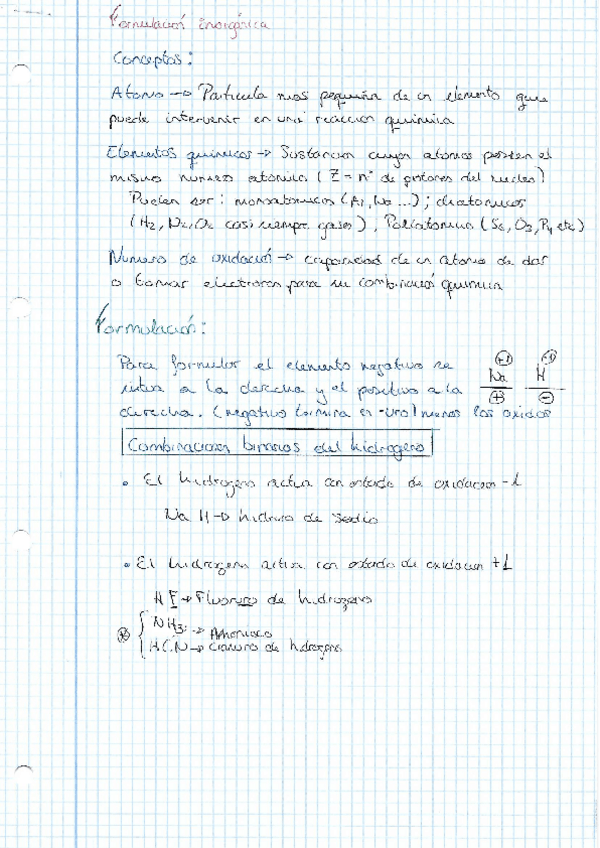 Formulación inorgánica
Conceptos:
Atomo → Particula mas pequeña de un elemento que
puede intervenir en una reaccion quimica
Elementos quimicos → Sustancias cuyos atomos poseen el
mismo numero atomico (Z = nº de protones del nucleo)
Pueden ser: monoatomicos (Ar, Ne ...); diatomicos
(H2, N2, O2 casi siempre gases), Poliatomicos (S8, O3, P4 etc)
Numero de oxidación → capacidad de un atomo de dar
o tomar electrones para su combinación quimica
Formulación:
Para formular el elemento negativo se
situa a la derecha y el positivo a la
derecha. (negativo termina en -uro) menos los oxidos
+1 -1
Na H
+ -
Combinaciones binarias del hidrogeno
• El hidrogeno actua con estado de oxidacion -1
Na H → hidruro de sodio
• El hidrogeno actua con estado de oxidacion +1
H F → Fluoruro de hidrogeno
NH3 → Amoniaco
HCN → Cianuro de hidrogeno